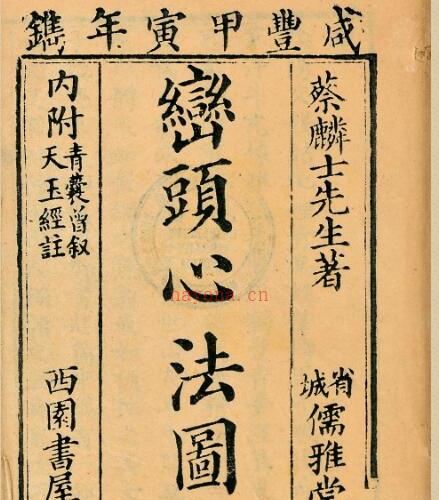 咸豐甲寅年鐫
蔡麟士先生著
省城儒雅堂
巒頭心法圖
内附青囊曾叙天玉經註
西園書屋
nayona.cn